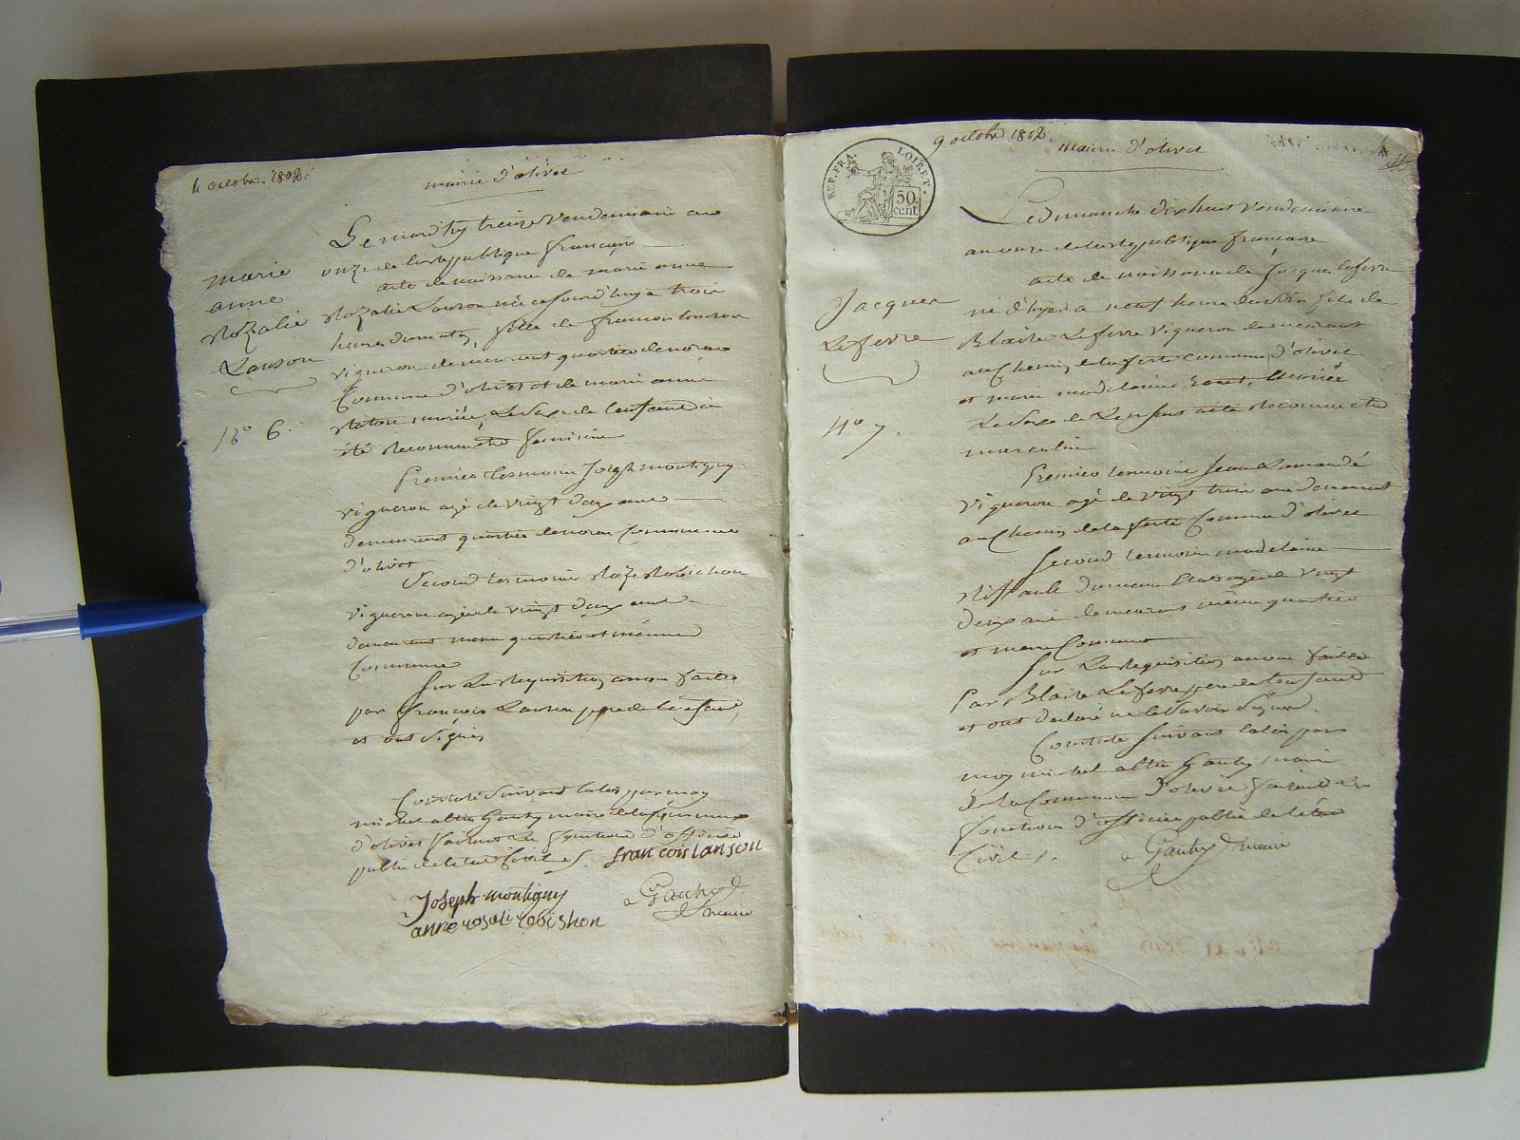 4 octobre 1802.
mairie d'olivet
Le mardy treize Vendemiaire an
onze de la republique française
acte de naissance de marie anne
Rozalie Lanson née ce jourd'huy a trois
heures du matin, fille de francois lanson
vigneron demeurant quartier de
Commune d'olivet et de marie anne
mariée, Le Sexe de Lenfant à
été Reconnu feminin
marie
anne
Rozalie
Lanson
No 6.
Premier temoin Joseph montigny
vigneron agé de vingt deux ans
demeurant quartier Commune
d'olivet
Second temoin Robichon
vigneron agé de vingt deux ans
demeurant meme quartier et même
Commune
Sur La Requisition a nous faite
par françois Lanson pere de lenfant,
et ont Signés
Constaté Suivant la loi par moy
michel Gauthy maire de la Commune
d'olivet faisant les fonctions d'officier
public de letat Civil
francois lanson
Joseph montigny
anne rosali robishon
Gauthy
maire
REP. FRA. LOIRET.
50
cent.
9 octobre 1802.
mairie d'olivet
Le dimanche dix huit Vendemiaire
an onze de la Republique française
acte de naissance de Jacques lefevre
né d'hyer a neuf heures du soir fils de
Blaise Lefevre vigneron demeurant
au Chemin de la ferté commune d'olivet
et marie madelaine mariés
Le Sexe de Lenfant a été Reconnu etre
masculin
Jacques
Lefevre
No 7.
Premier temoin Jean
vigneron agé de vingt trois ans demeurant
au Chemin de la ferté Commune d'olivet
Second temoin madelaine
agée de vingt
deux ans demeurant même quartier
et meme Commune
Sur La Requisition a nous faite
Par Blaise Lefevre pere de lenfant
et ont declaré ne Savoir Signer.
Constaté Suivant la loi par
moy michel Gauthy maire
de la Commune d'olivet faisant les
fonctions d'officier public de létat
Civil.
Gauthy maire